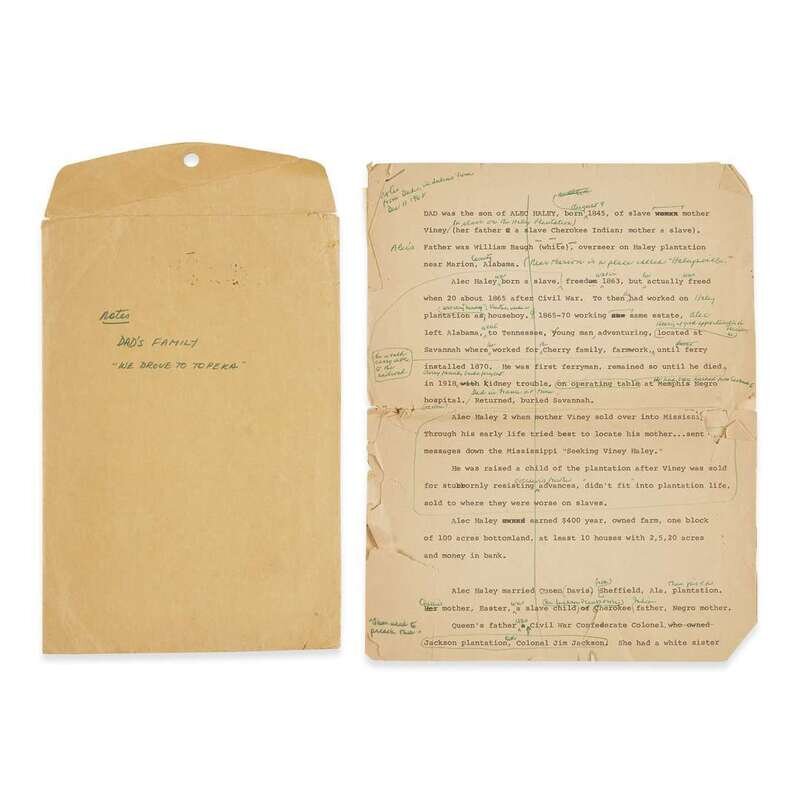 Notes
DAD'S FAMILY
"WE DROVE TO TOPEKA"
Notes
from Dad
Dec 11
August 9
DAD was the son of ALEC HALEY, born 1845, of slave mother
(a slave on the Haley Plantation)
Viney (her father a slave Cherokee Indian; mother a slave).
Alec's Father was William Baugh (white), overseer on Haley plantation
County
near Marion, Alabama. (Near Marion is a place called "Haleyville.")
was
Alec Haley born a slave, freed 1863, but actually freed
when 20 about 1865 after Civil War. To then had worked on Haley
plantation as houseboy. 1865-70 working same estate, Alec
left Alabama, to Tennessee, young man adventuring, located at
Savannah where worked for Cherry family, farmwork, until ferry
installed 1870. He was first ferryman, remained so until he died
in 1918, kidney trouble, on operating table at Memphis Negro
Dad in France at time
hospital. Returned, buried Savannah.
Alec Haley 2 when mother Viney sold over into Mississi
Through his early life tried best to locate his mother...sent
messages down the Mississippi "Seeking Viney Haley."
He was raised a child of the plantation after Viney was sold
for stubbornly resisting advances, "didn't fit" into plantation life,
sold to where they were worse on slaves.
Alec Haley owned earned $400 year, owned farm, one block
of 100 acres bottomland, at least 10 houses with 2,5,20 acres
and money in bank.
Alec Haley married Queen (Davis) Sheffield, Ala, plantation.
Queen's
Her mother, Easter, was a slave child of Cherokee Indian father, Negro mother.
Queen's father was Civil War Confederate Colonel who owned
Jackson plantation, Colonel Jim Jackson. She had a white sister